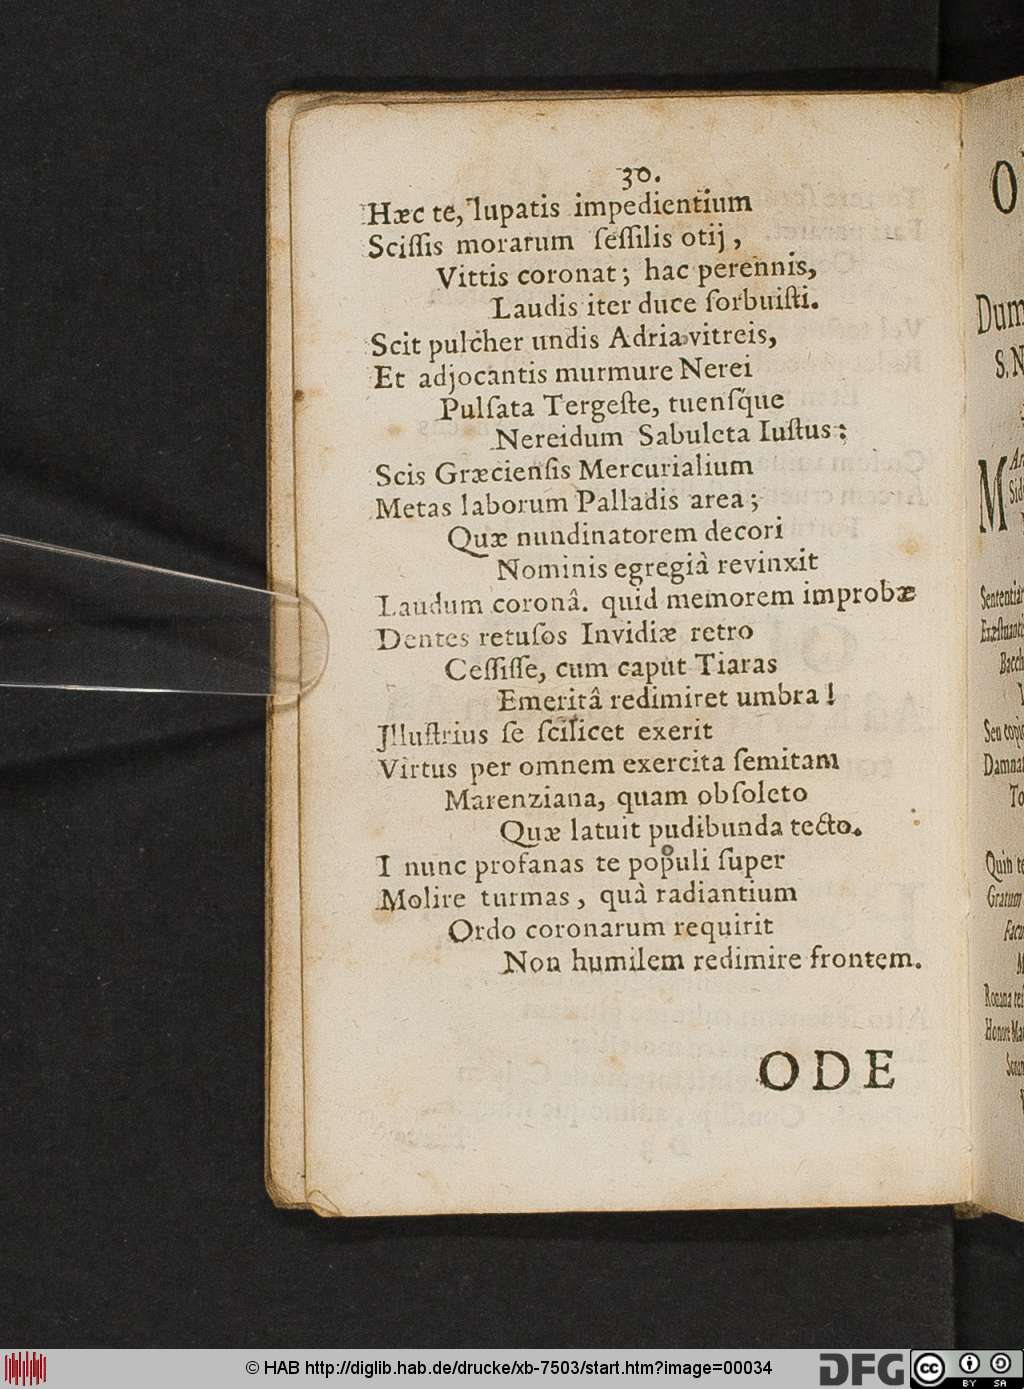 30.
Hæc te, lupatis impedientium
Sciſſis morarum ſeſſilis otij,
Vittis coronat; hac perennis,
Laudis iter duce ſorbuiſti.
Scit pulcher undis Adria vitreis,
Et adjocantis murmure Nerei
Pulſata Tergeſte, tuenſq́ue
Nereidum Sabuleta Iuſtus:
Scis Græcienſis Mercurialium
Metas laborum Palladis area;
Quæ nundinatorem decori
Nominis egregià revinxit
Laudum coronâ. quid memorem improbæ
Dentes retuſos Invidiæ retro
Ceſſiſſe, cum caput Tiaras
Emeritâ redimiret umbra!
Illuſtrius ſe ſcilicet exerit
Virtus per omnem exercita ſemitam
Marenziana, quam obſoleto
Quæ latuit pudibunda tecto.
I nunc profanas te populi ſuper
Molire turmas, quà radiantium
Ordo coronarum requirit
Non humilem redimire frontem.
ODE
O
Dum
S. N
M
Sententiar
Bacch
Seu copi
Damnat
To
Quin te
Gratum
Facu
Honore Ma
© HAB http://diglib.hab.de/drucke/xb-7503/start.htm?image=00034
DFG
cc BY SA